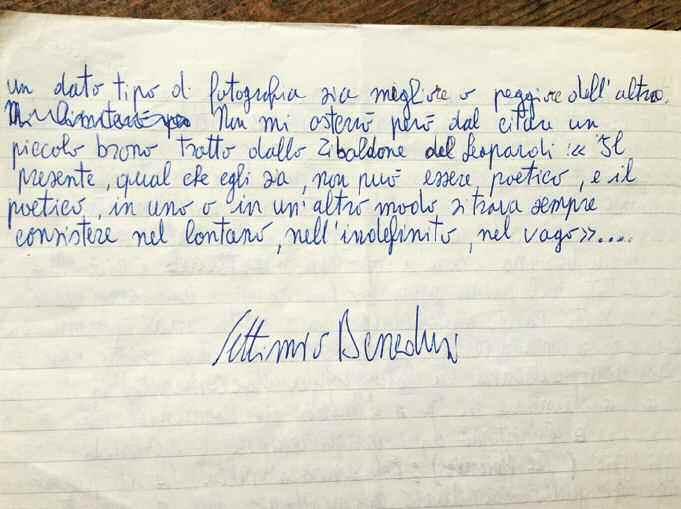 un dato tipo di fotografia sia migliore o peggiore dell'altro.
Non mi asterrò però dal citare un
piccolo brano tratto dallo Zibaldone del Leopardi: « Il
presente, qual che egli sa, non può essere poetico, e il
poetico, in uno o in un'altro modo si trova sempre
consistere nel lontano, nell'indefinito, nel vago»....
Settimio Benedusi